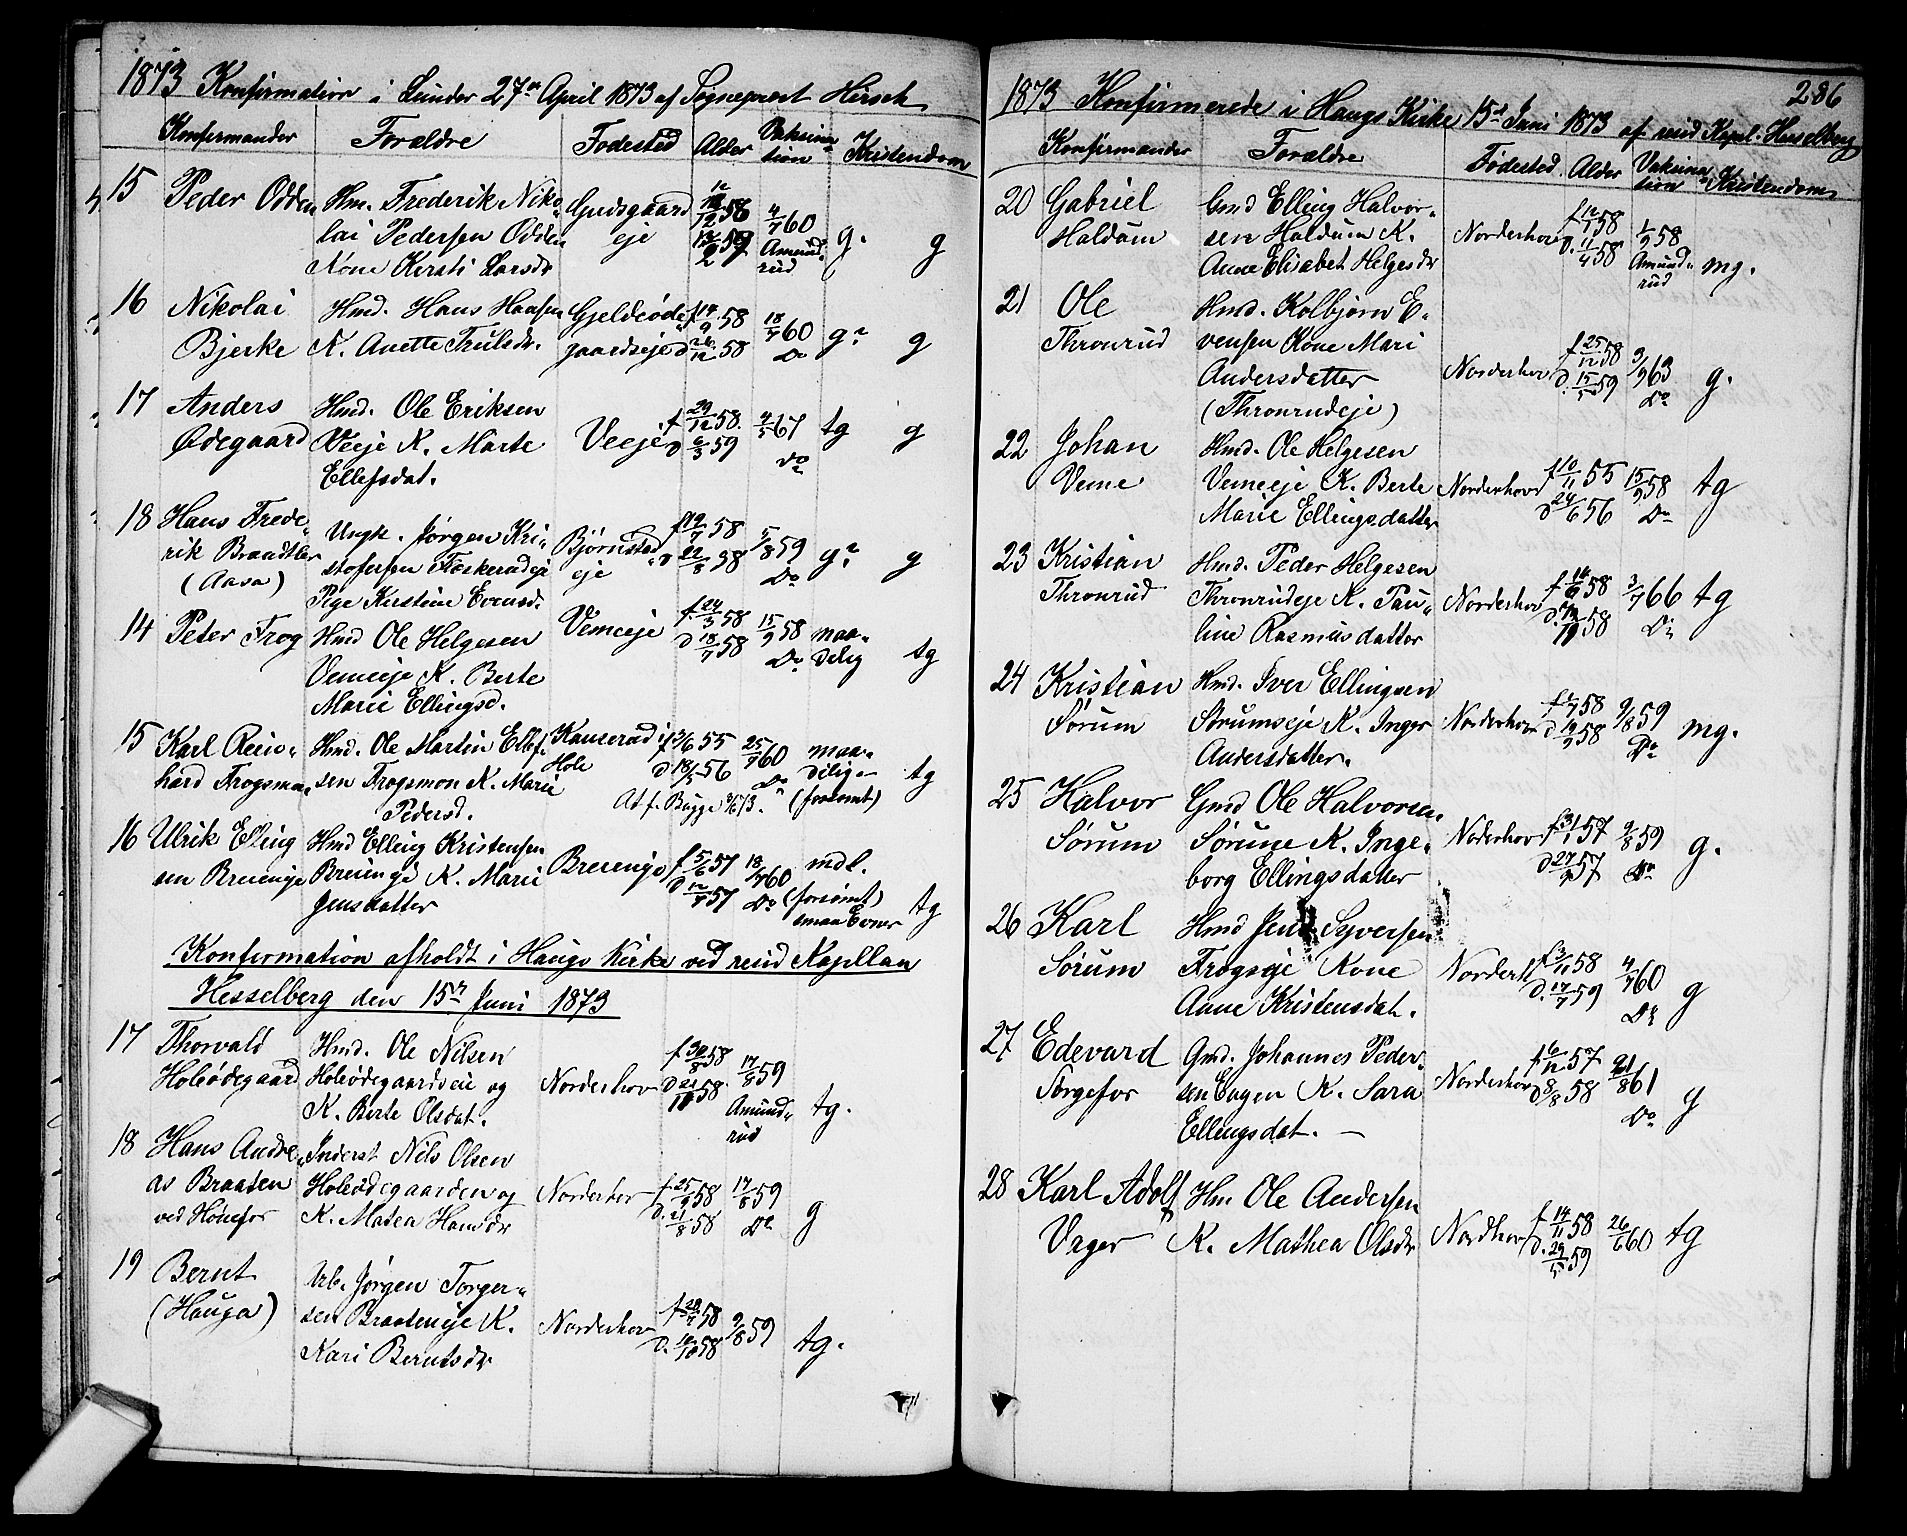 1873 Konfirmation i Lunder 27de April 1873 af Sogneprest Hirsch
Konfirmander Forældre Fodested Alder Vaksination Kristendom
15 Peder Odden Hm. Frederik Niko-
lai Pedersen Odden
Kone Kersti Larsdr
Gudsgaard
eje
12/12 58
12/2 59
4/7 60
Amund-
rud
g. g
16 Nikolai
Bjerke
Hmd. Hans Hansen
K. Anette Trulsdr.
Gjeldeøde-
gaardseje
f 14/9 58
d 26/12 58
18/7 60
Do
g? g
17 Anders
Ødegaard
Hmd. Ole Eriksen
Veeje K. Marte
Ellefsdat.
Veeje
f 29/12 58.
d 6/3 59
4/5 67
Do
tg g
18 Hans Frede-
rik Braadtler
(Aasa)
Ungk. Jørgen Kri-
stofersen Foskerudeje
Pige Kirstine Evensd.
Bjørnstad
eje
f 19/7 58
d 22/8 58
5/8 59
Do
g? g
14 Peter Frog
Hmd Ole Helgesen
Vemeeje K. Berte
Marie Ellingsd.
Vemeeje
f. 24/3 58
d 18/7 58
15/9 58
Do
maa-
delig
tg
15 Karl Rein-
hard Frogsmo-
Hmd. Ole Martin Ellef-
sen Frogsmon K. Marie
Pedersd.
Kamerud i
Hole
f 3/6 55
d 18/5 56
25/7 60
Do
maa-
delig-
(forsømt)
tg
Att f. Bugge
16 Ulrik Elling
sen Breieneje
Hmd Elling Kristensen
Breieneje K. Marie
Jensdatter
Breieneje
f 5/6 57
d 12/7 57
18/7 60
Do
mdl.
(forsømt)
smaa Evner
tg
Konfirmation afholdt i Haugs Kirke ved resid Kapellan
Hesselberg den 15de Juni 1873
17 Thorvald
Holeødegaard
Hmd. Ole Nilsen
Holeødegaardseie og
K. Berte Olsdat.
Norderhov
f 30/8 58
d 21/10 58
17/8 59
Amund-
rud
tg.
18 Hans Andre-
as Braaten
ved Hønefos
Inderst Nils Olsen
Holeødegaarden og
K. Matea Hansdr
Norderhov
f. 25/6 58
d. 21/8 58
17/8 59
Do
g
19 Bernt
(Hauga)
Arb. Jørgen Torger-
sen Braateneje K.
Kari Berntsdr
Norderhov
f 29/7 58
d. 10/10 58
9/8 59
tg.
286
1873 Konfirmerede i Haugs Kirke 15de Juni 1873 af resid Kapel. Hesselberg
Konfirmander Forældre Fødested Alder Vaksination Kristendom
20 Gabriel
Haldum
Gmd Elling Halvor-
sen Haldum K.
Anne Elisabet Helgesdr
Norderhov
1/9 58
Amund-
rud
mg.
21 Ole
Thronrud
Hmd. Kolbjørn E-
vensen Kone Mari
Andersdatter
(Thronrudeje)
Norderhov
f 25/12 58
d. 15/5 59
3/9 63
Do
g.
22 Johan
Veme
Hmd. Ole Helgesen
Vemeeje K. Berte
Marie Ellingsdatter
Norderhov
f 10/11 55
d 24/6 56
15/9 58
Do
tg
23 Kristian
Thronrud
Hmd. Peder Helgesen
Thronrudeje K. Pau-
line Rasmusdatter
Norderhov
3/7 66
Do
tg
24 Kristian
Sørum
Hmd. Iver Ellingsen
Sørumseje K. Inger
Andersdatter.
Norderhov
f 1/7 58
d 19/9 58
9/8 59
Do
mg.
25 Halvor
Sørum
Gmd Ole Halvorsen-
Sørum K. Inge-
borg Ellingsdatter
Noderhov
f 31/1 57
9/8 59
Do
g.
26 Karl
Sørum
Hmd Jens Syversen
Frogseje Kone
Anne Kristensdat.
Norderh
f 3/11 58
d. 17/7 59
4/7 60
Do
g
27 Edevard
Sørgefos
Gmd. Johannes Peder-
sen Engen K. Sara
Ellingsdat. -
Norderhov
f 6/12 57
d 8/8 58
21/8 61
Do
g
28 Karl Adolf
Vager
Hm. Ole Andersen
K. Mathea Olsdr
Nordhov
f 14/11 58
d. 29/5 59
26/6 60
tg